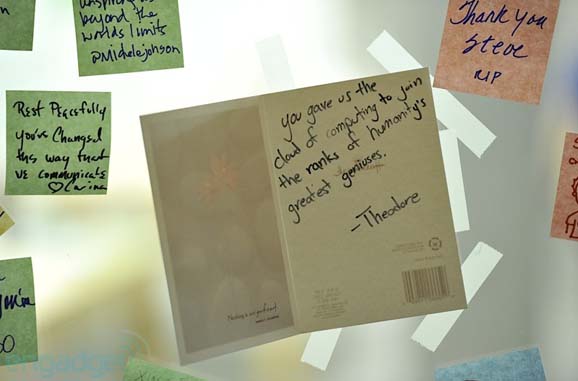 beyond the
worlds limits
@Michelejohnson
Thank you
Steve
RIP
Rest Peacefully
you've Changed
the way that
we communicate
♡Carina
you gave us the
cloud of computing to join
the ranks of humanity's
greatest geniuses.
-Theodore
engadget